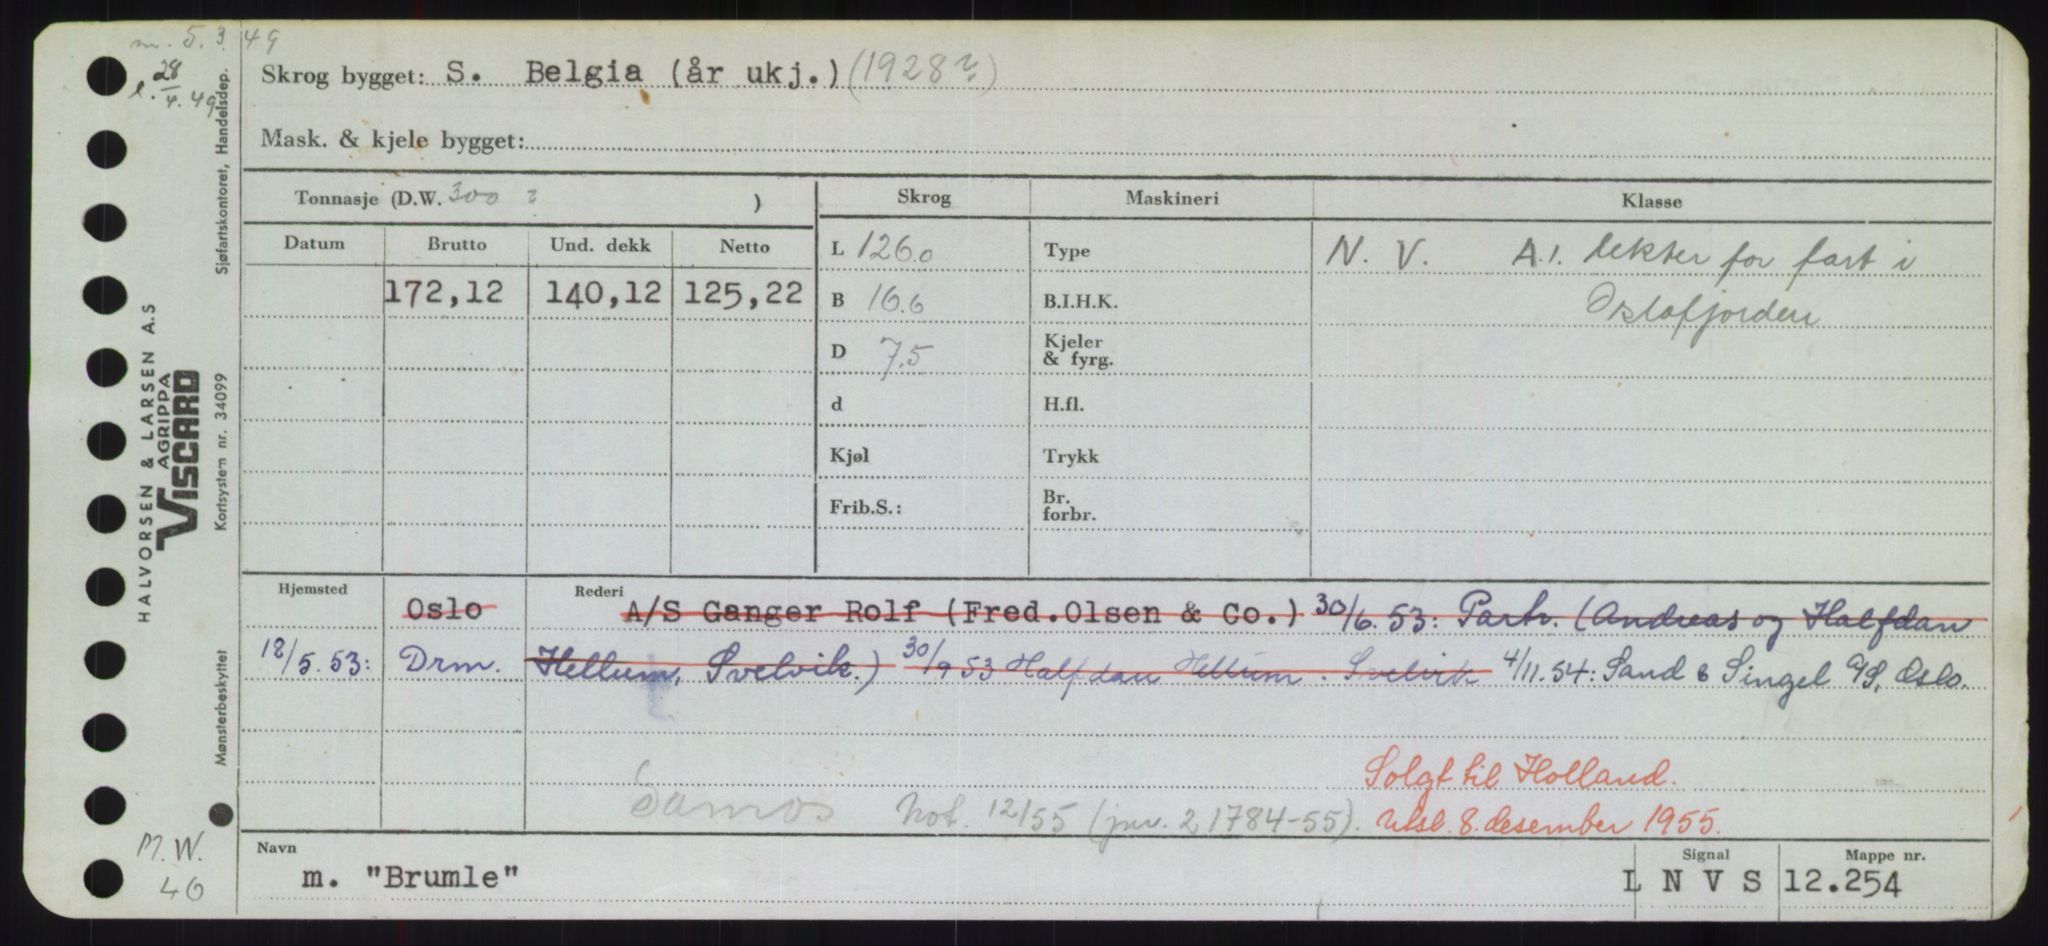 m. 5. 3. 49
l. 28/4. 49
Skrog bygget: S. Belgia (år ukj.) (1928?)
Mask. & kjele bygget:
Tonnasje (D.W. 300 ? )
Skrog
Maskineri
Klasse
Datum
Brutto
Und. dekk
Netto
172,12
140,12
125,22
L 126.0
B 16.6
D 7.5
d
Kjøl
Frib.S.:
Type
B.I.H.K.
Kjeler
& fyrg.
H.fl.
Trykk
Br.
forbr.
N. V. A.1. lekter for fart i
Oslofjorden
Hjemsted
Oslo
Rederi
A/S Ganger Rolf (Fred.Olsen & Co.) 30/6.53: Partr. (Andreas og Halfdan
18/5.53: Drm. Hellum, Svelvik.) 30/9 53 Halfdan Hellum. Svelvik 4/11.54: Sand & Singel A/S, Oslo.
Solgt til Holland.
Samos Not. 12/55 (jnr. 21784-55). Utsl. 8. desember 1955.
Navn
m. "Brumle"
Signal
L N V S
Mappe nr.
12.254
M.W.
46
HALVORSEN & LARSEN A.S
AGRIPPA
VISCARD
Sjøfartskontoret, Handelsdep.
Kortsystem nr. 34099
Mønsterbeskyttet